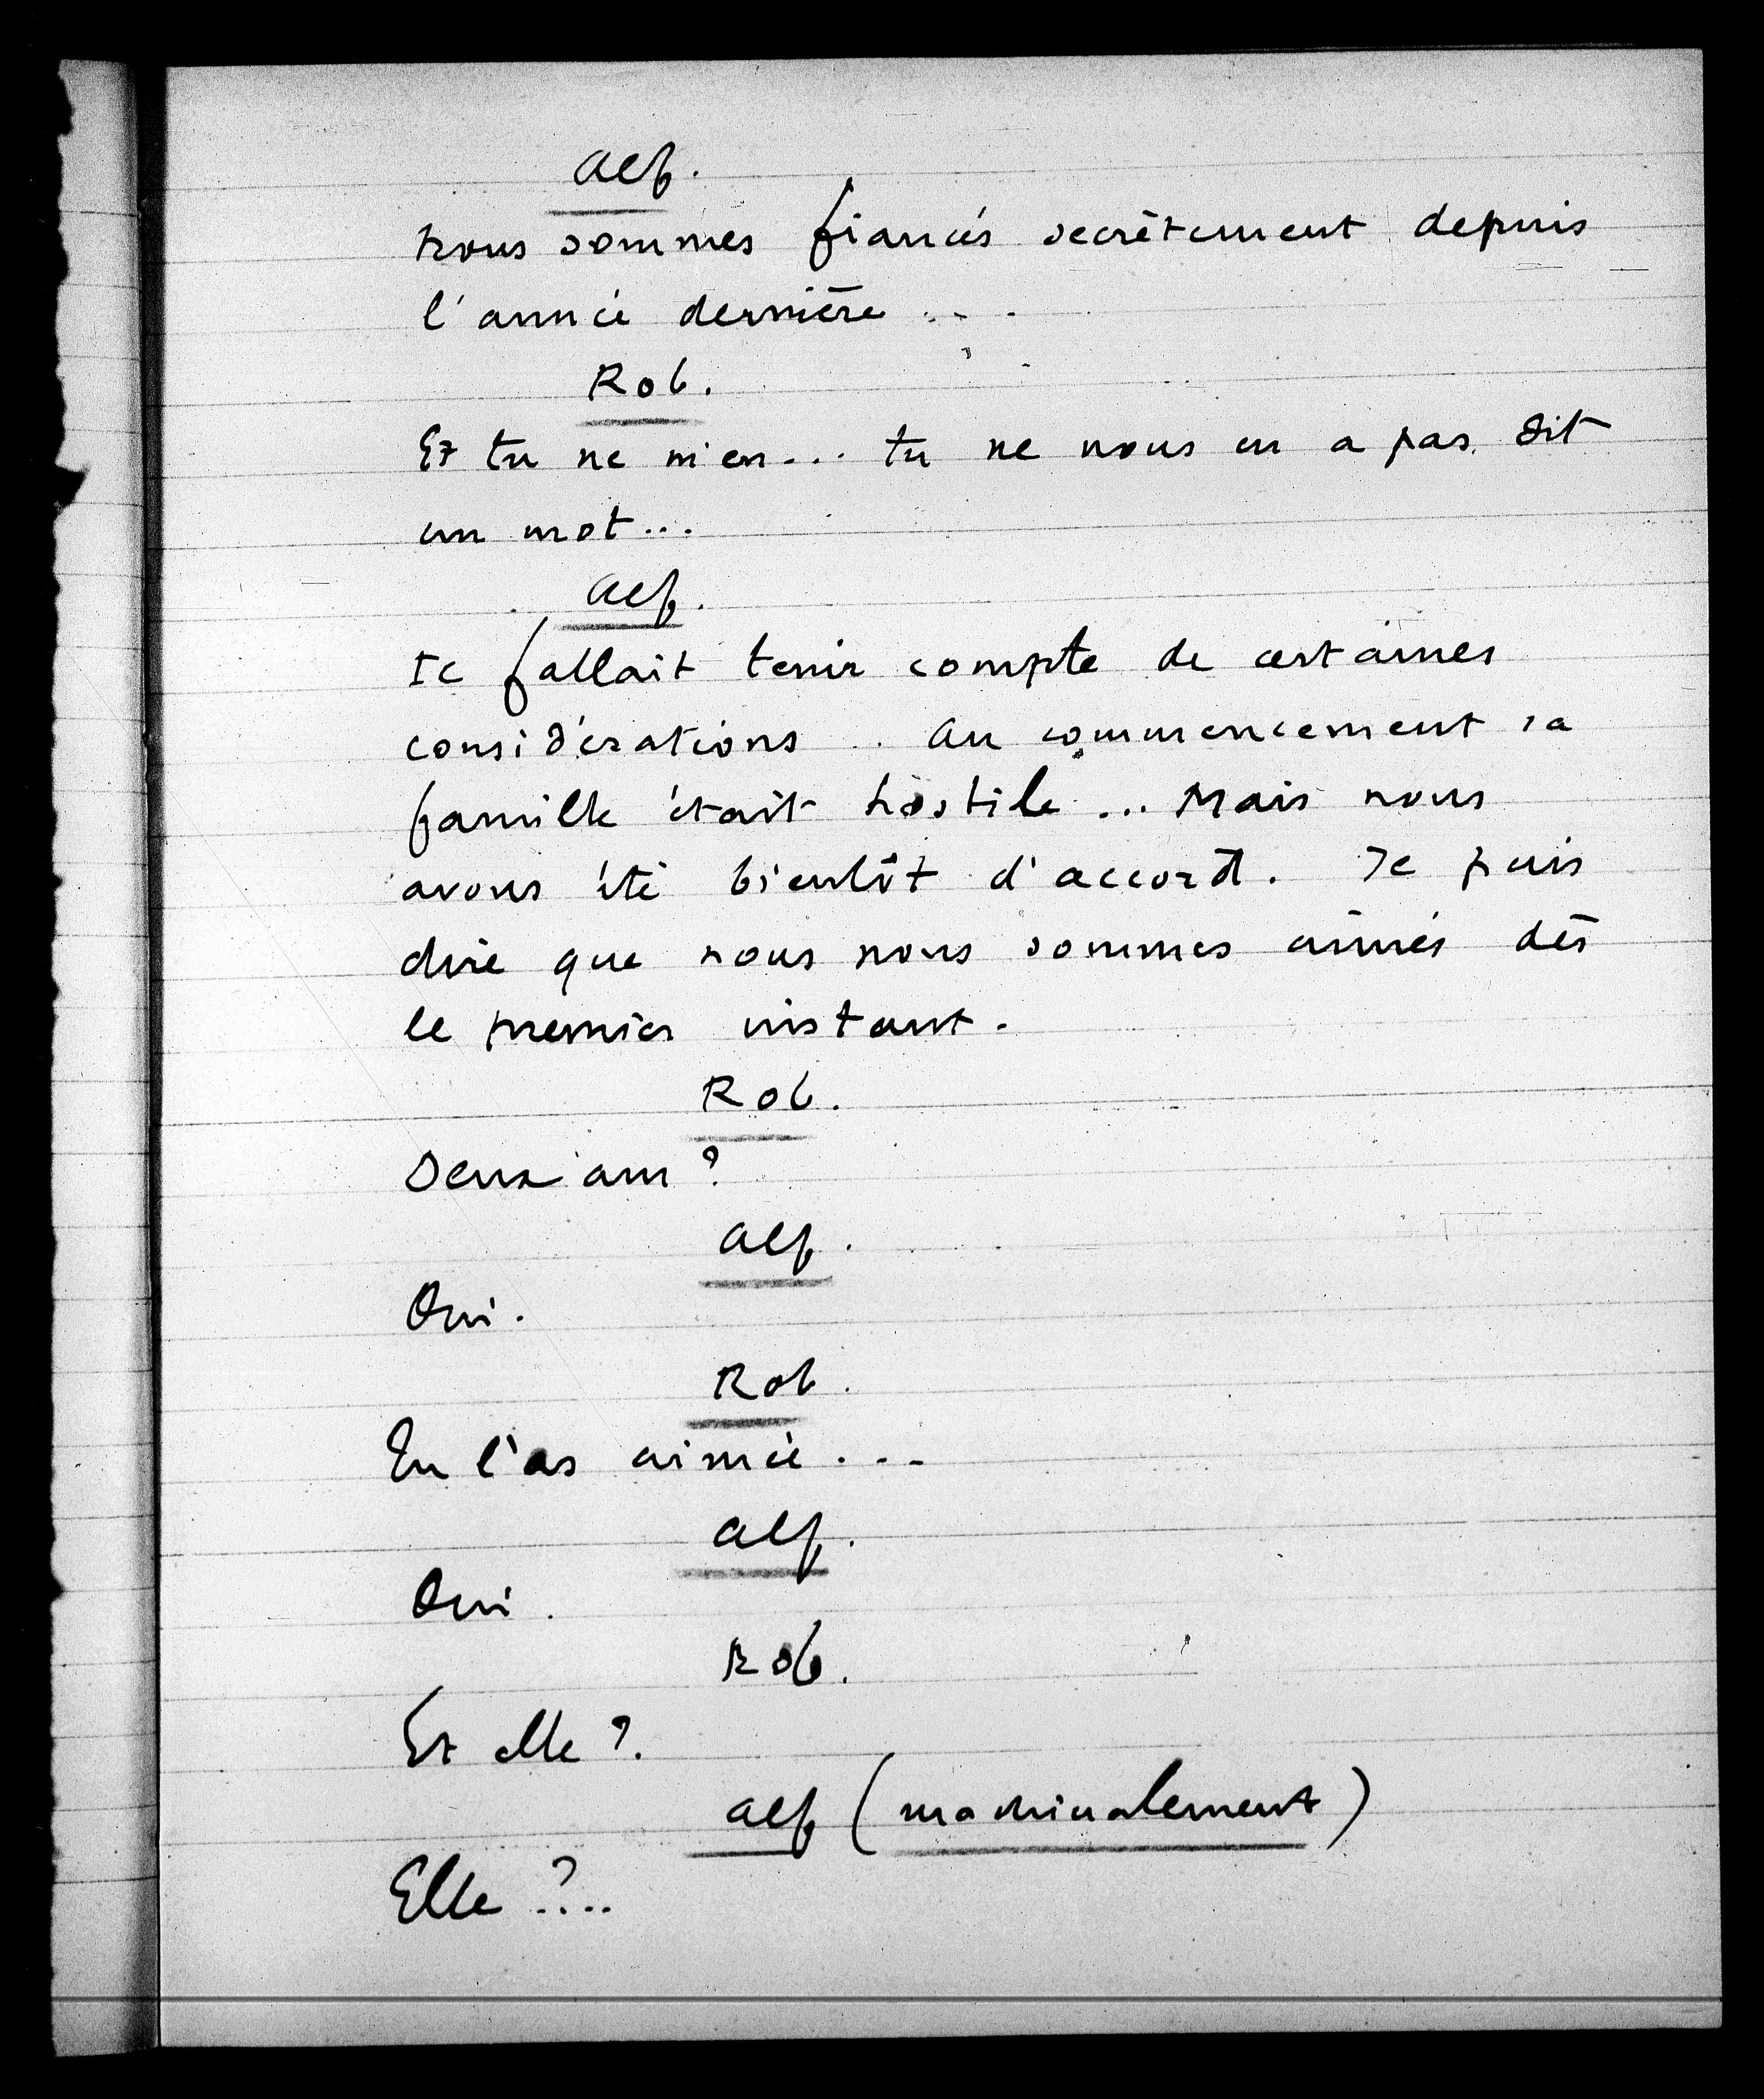 Alf.
Nous sommes fiancés secrètement depuis
l'année dernière...
Rob.
Et tu ne m'en... tu ne nous en a pas dit
un mot...
Alf.
Il fallait tenir compte de certaines
considérations.. Au commencement sa
famille était hostile... Mais nous
avons été bientôt d'accord. Je puis
dire que nous nous sommes aimés dès
le premier instant.
Rob.
Deux ans?
Alf.
Oui.
Rob.
Tu l'as aimée...
Alf.
Oui.
Rob.
Et elle?.
Alf (machinalement)
Elle?...